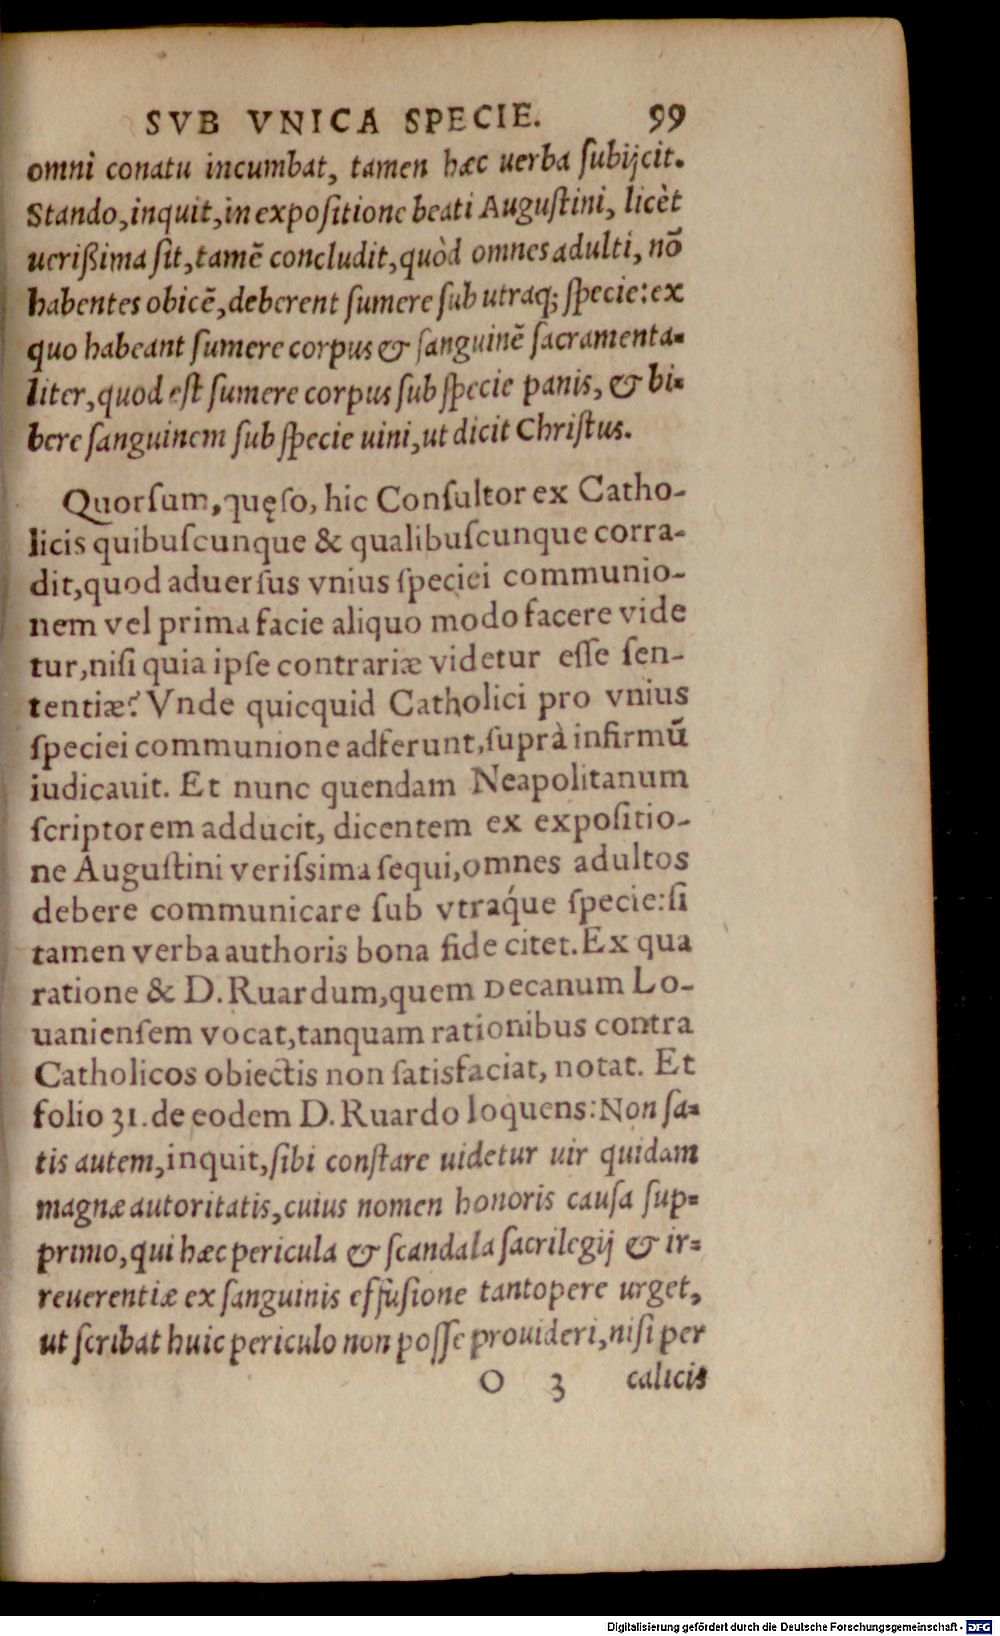 SVB VNICA SPECIE. 99
omni conatu incumbat, tamen hæc uerba ſubijcit.
Stando, inquit, in expoſitione beati Auguſtini, licèt
ueriſsima ſit, tamē concludit, quòd omnes adulti, nō
habentes obicē, deberent ſumere ſub utraq; ſpecie: ex
quo habeant ſumere corpus & ſanguinē ſacramenta-
liter, quod eſt ſumere corpus ſub ſpecie panis, & bi-
bere ſanguinem ſub ſpecie uini, ut dicit Chriſtus.
Quorſum, quęſo, hic Conſultor ex Catho-
licis quibuſcunque & qualibuſcunque corra-
dit, quod aduerſus vnius ſpeciei communio-
nem vel prima facie aliquo modo facere vide
tur, niſi quia ipſe contrariæ videtur eſſe ſen-
tentiæ? Vnde quicquid Catholici pro vnius
ſpeciei communione adferunt, ſuprà infirmū
iudicauit. Et nunc quendam Neapolitanum
ſcriptorem adducit, dicentem ex expoſitio-
ne Auguſtini veriſsima ſequi, omnes adultos
debere communicare ſub vtráque ſpecie: ſi
tamen verba authoris bona fide citet. Ex qua
ratione & D. Ruardum, quem Decanum Lo-
uanienſem vocat, tanquam rationibus contra
Catholicos obiectis non ſatisfaciat, notat. Et
folio 31. de eodem D. Ruardo loquens: Non ſa-
tis autem, inquit, ſibi conſtare uidetur uir quidam
magnæ autoritatis, cuius nomen honoris cauſa ſup-
primo, qui hæc pericula & ſcandala ſacrilegij & ir-
reuerentiæ ex ſanguinis effuſione tantopere urget,
ut ſcribat huic periculo non poſſe prouideri, niſi per
O 3 calicis
Digitalisierung gefördert durch die Deutsche Forschungsgemeinschaft - DFG